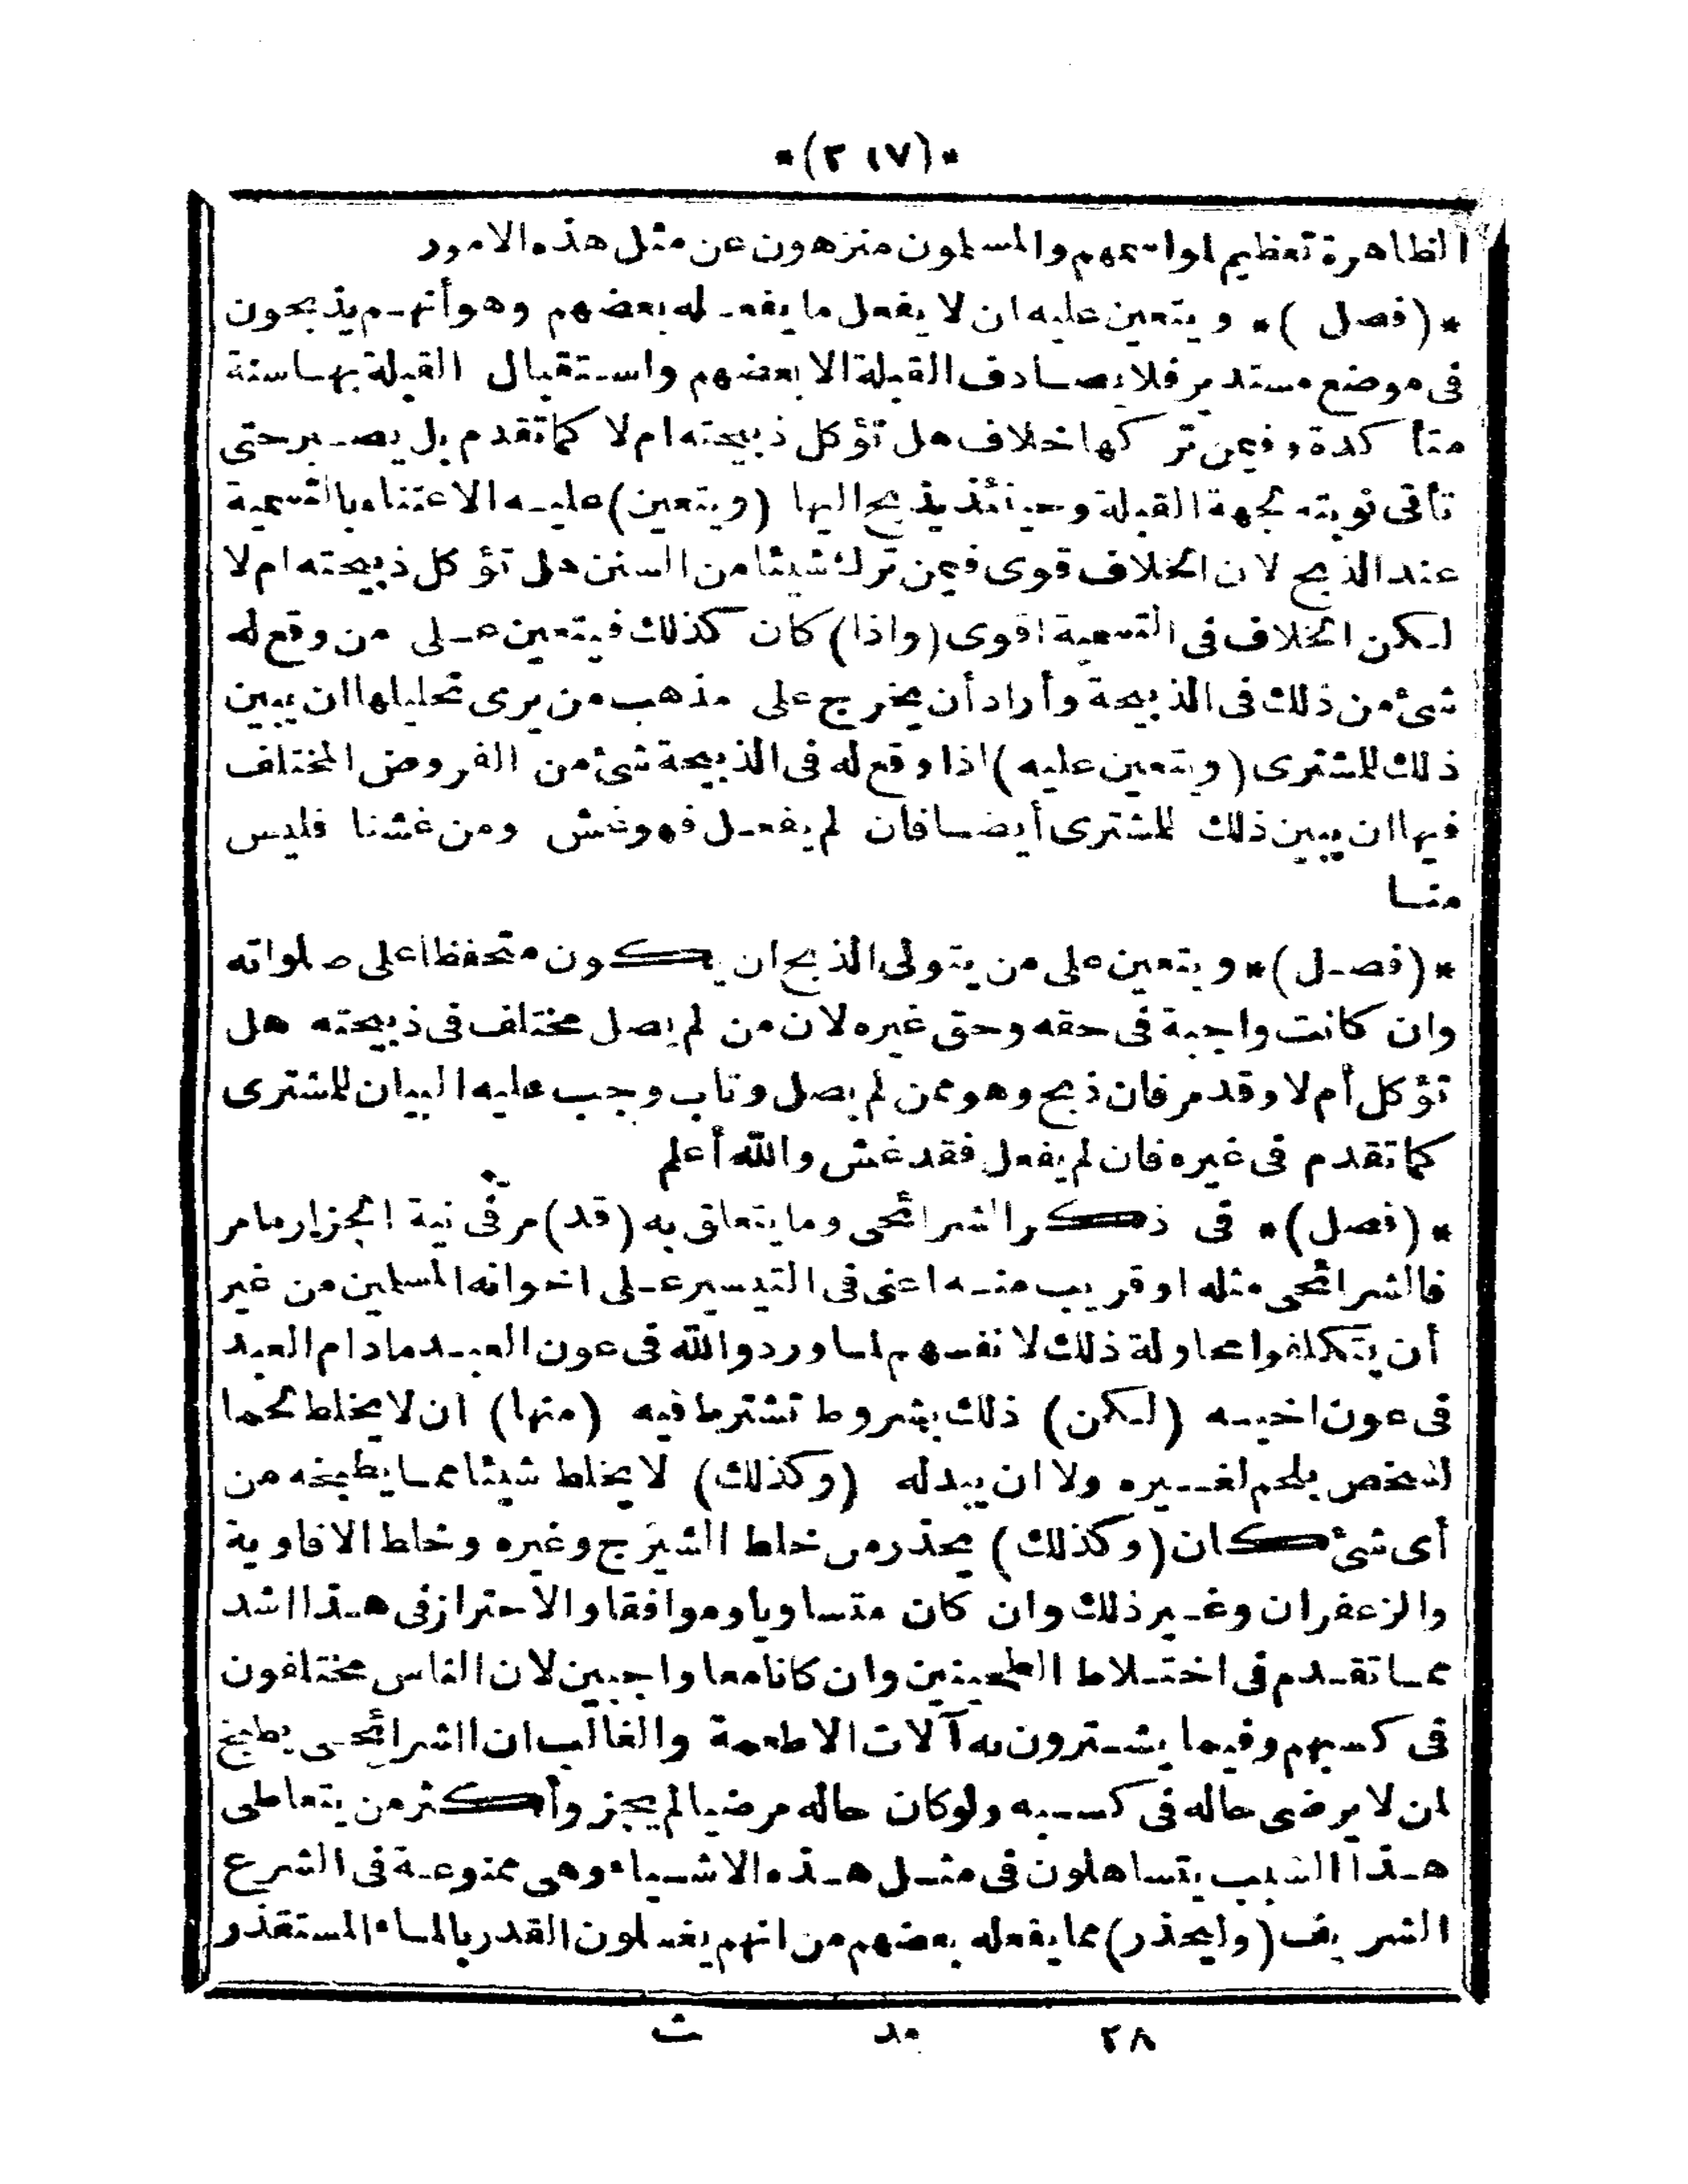 *(٢١٧)*
الظاهرة تعظيم لمواسمهم والمسلمون منزهون عن مثل هذه الامور
*(فصل)* ويتعين عليه ان لا يفعل ما يفعله بعضهم وهو أنهم يذبحون
فى موضع مستدير فلا يصادف القبلة الا بعضهم واستقبال القبلة بها سنة
متأكدة وفيمن تركها خلاف هل تؤكل ذبيحته ام لا كما تقدم بل يصبر حتى
تأتى نوبته لجهة القبلة وحينئذ يذبح اليها (ويتعين) عليه الاعتناء بالتسمية
عند الذبح لان الخلاف قوى فيمن ترك شيئا من السنن هل تؤكل ذبيحته ام لا
لكن الخلاف فى التسمية اقوى (واذا) كان كذلك فيتعين على من وقع له
شئ من ذلك فى الذبيحة وأراد أن يخرج على مذهب من يرى تحليلها ان يبين
ذلك للمشترى (ويتعين عليه) اذا وقع له فى الذبيحة شئ من الفروض المختلف
فيها ان يبين ذلك للمشترى أيضا فان لم يفعل فهو غش ومن غشنا فليس
منا
*(فصل)* ويتعين على من يتولى الذبح ان يكون متحفظا على صلواته
وان كانت واجبة فى حقه وحق غيره لان من لم يصل مختلف فى ذبيحته هل
تؤكل أم لا وقد مر فان ذبح وهو ممن لم يصل وتاب وجب عليه البيان للمشترى
كما تقدم فى غيره فان لم يفعل فقد غش والله أعلم
*(فصل)* فى ذكر الشرائحى وما يتعلق به (قد) مر فى نية الجزار ما مر
فالشرائحى مثله او قريب منه اعنى فى التيسير على اخوانه المسلمين من غير
أن يتكلفوا محاولة ذلك لانفسهم لما ورد والله فى عون العبد مادام العبد
فى عون اخيه (لكن) ذلك بشروط تشترط فيه (منها) ان لا يخلط لحما
لشخص بلحم لغيره ولا ان يبدله (وكذلك) لا يخلط شيئا مما يطبخه من
أى شئ كان (وكذلك) يحذر من خلط الشيرج وغيره وخلط الافاوية
والزعفران وغير ذلك وان كان متساويا وموافقا والاحتراز فى هذا اشد
مما تقدم فى اختلاط الطحينين وان كانا معا واجبين لان الناس مختلفون
فى كسبهم وفيما يشترون به آلات الاطعمة والغالب ان الشرائحى يطبخ
لمن لا يرضى حاله فى كسبه ولو كان حاله مرضيا لم يجز وأكثر من يتعاطى
هذا السبب يتساهلون فى مثل هذه الاشياء وهى ممنوعة فى الشرع
الشريف (وليحذر) مما يفعله بعضهم من انهم يغسلون القدر بالماء المستقذر
٢٨ مد ث